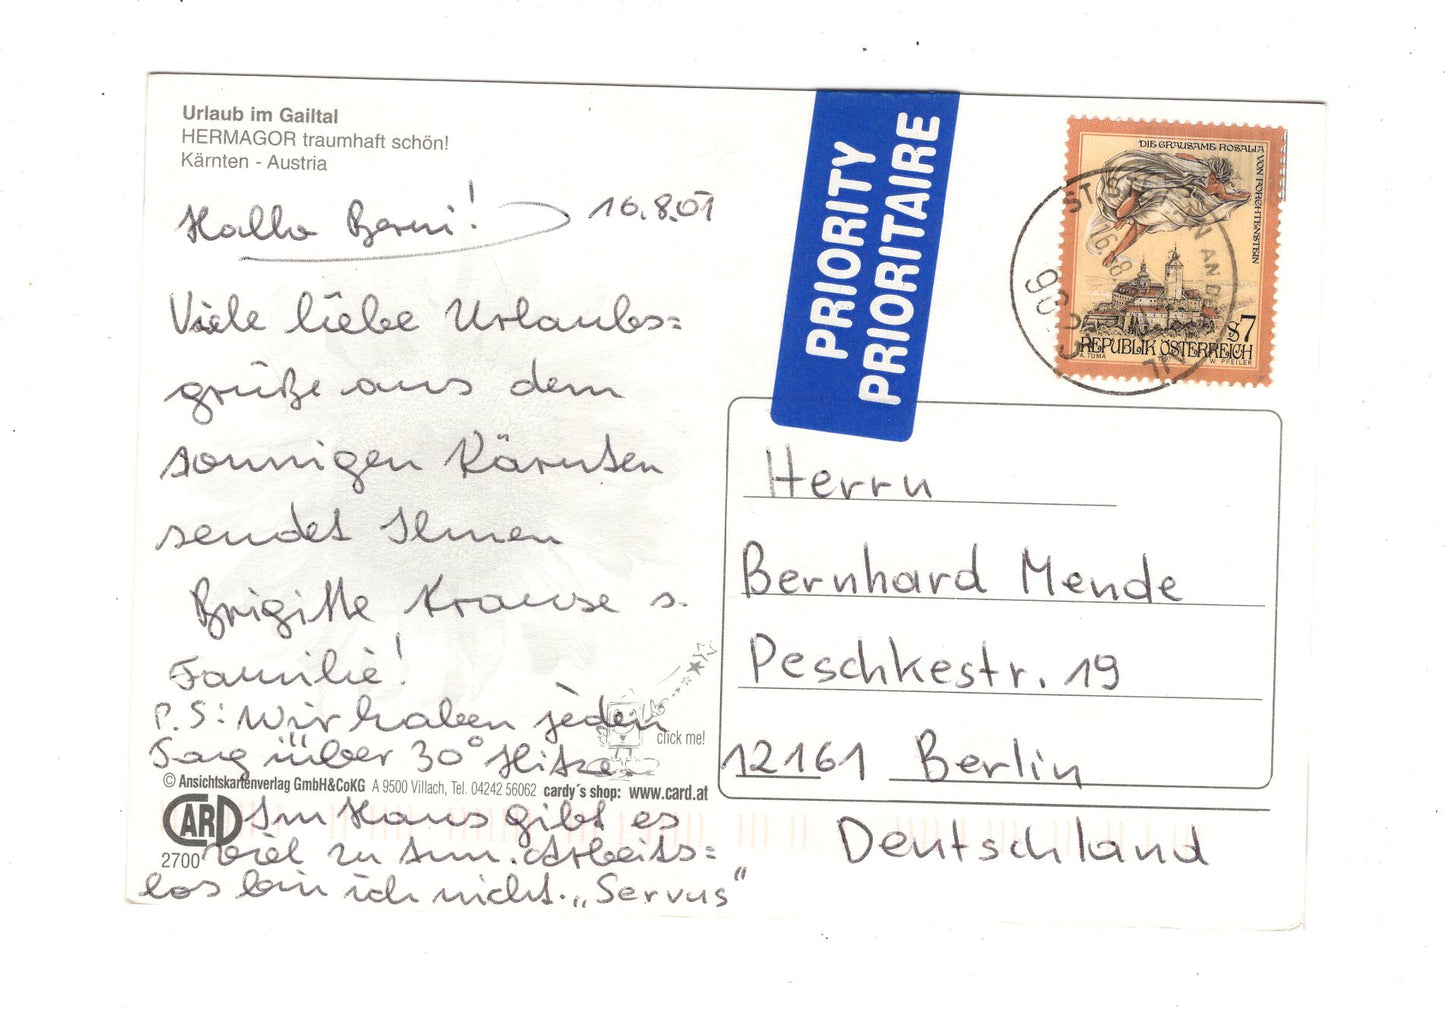 Urlaub im Gailtal
HERMAGOR traumhaft schön!
Kärnten - Austria
Hallo Berni! 16.8.01
Viele liebe Urlaubs=
grüße aus dem
sonnigen Kärnten
sendet Ihnen
Brigitte Krause s.
Familie!
P.S: Wir haben jeden
Tag über 30° Hitze
click me!
© Ansichtskartenverlag GmbH&CoKG A 9500 Villach, Tel. 04242 56062 cardy´s shop: www.card.at
CARD
Im Haus gibt es
2700
viel zu tun. Arbeits=
los bin ich nicht. „Servus"
PRIORITY
PRIORITAIRE
DIE GRAUSAME ROSALIA VON FORCHTENSTEIN
S7
REPUBLIK ÖSTERREICH
A. TUMA
W. PFEILER
ST. AN DER
16.-8.
Herrn
Bernhard Mende
Peschkestr. 19
12161 Berlin
Deutschland